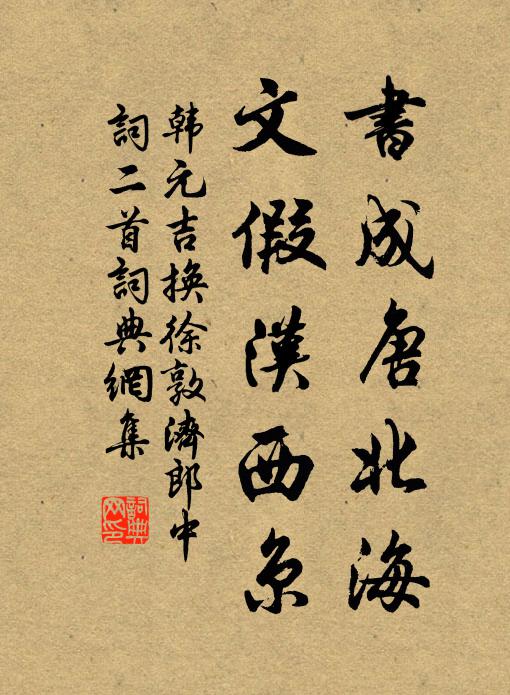 書成唐北海
文假漢西京
韩元吉換徐敦濟郎中
詞二首詞典網集
詞典网印